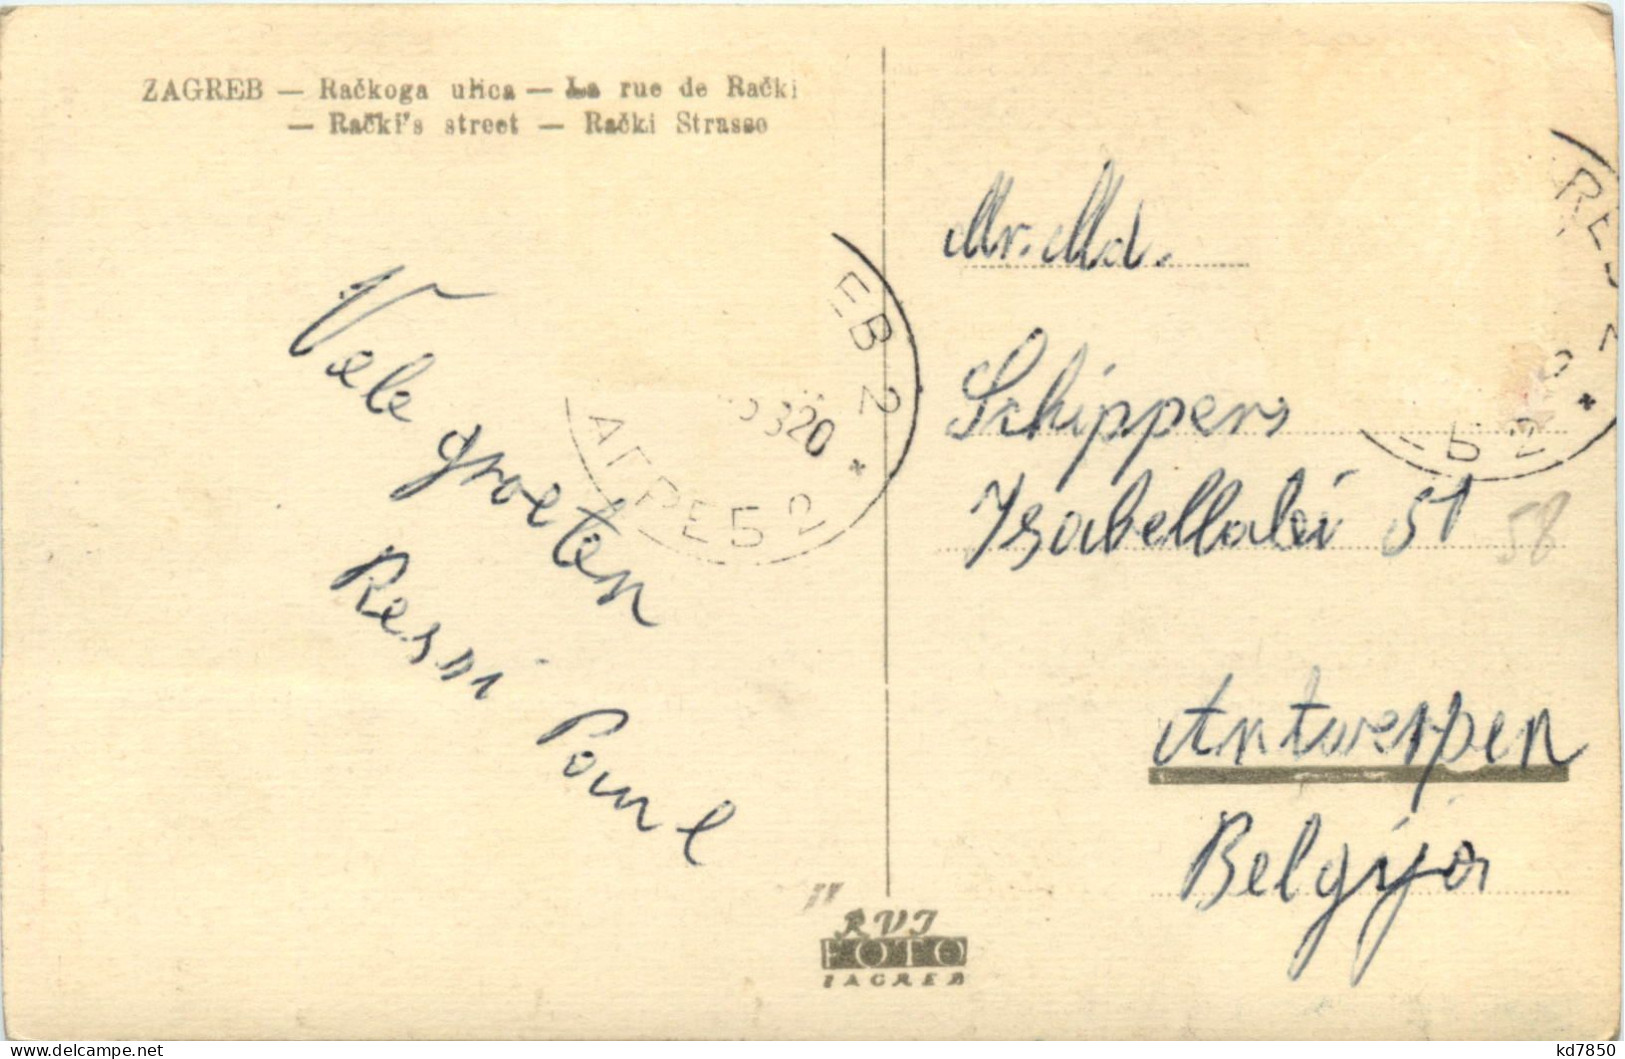 ZAGREB — Račkoga ulica — La rue de Rački
— Rački's street — Rački Strasse
Vele groeten
Ressi
EB 2
320
*
АГРЕБ 2
Mr. Md.
Schippers
Isabellalei 51
58
Antwerpen
Belgija
REB 2
*
RVI
FOTO
ZAGREB
kd7850